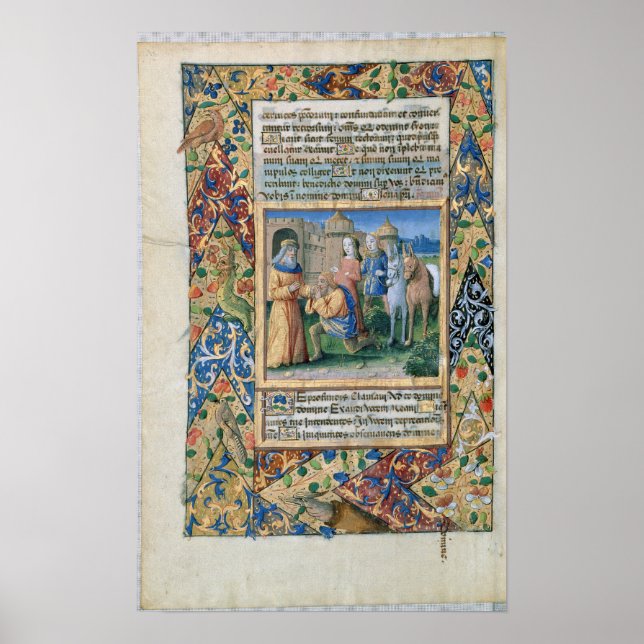 cervices peccatorum: confundantur et conver
tantur retrorsum: omnes qui oderunt syon
fiant sicut fenum tectorum: quod priusquam
evellatur exaruit De quo non implevit ma
num suam qui metet: et sinum suum qui ma
nipulos colliget Et non dixerunt qui pre
teribant: benedictio domini super vos: benedixim
vobis in nomine domini
De profundis clamavi ad te domine
domine exaudi vocem meam Fiant
aures tue intendentes: In vocem deprecationis
Si iniquitates observaveris domine